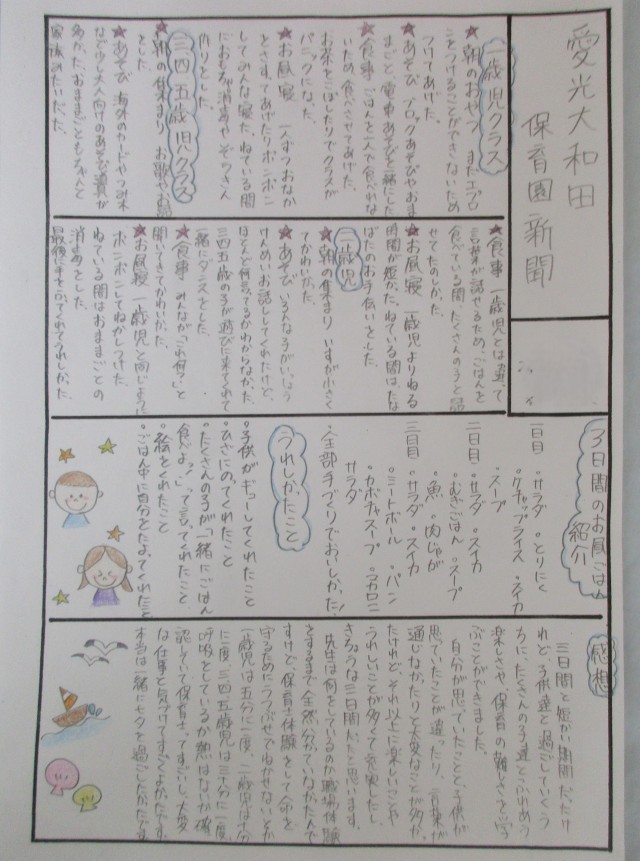 愛光大和田
保育園新聞
一歳児クラス
★朝のおやつ まだエプロ
ことつけることができないため
つけてあげた。
★あそび ブロックあそびやおま
まごと、電車あそびを一緒にした
★食事 ごはんを一人で食べれな
いため食べさせてあげた。
お茶をこぼしたりでクラスが
パニックになった。
★お昼寝 一人ずつおなか
とさすってあげたりポンポン
してみんな寝た ねている間
におもちゃ消毒やぞうきん
作りをした。
三四五歳児クラス
★朝の集まり お歌やお話
をした。
★あそび 海外のカードやつみ木
など少し大人向けのあそび道具が
多かった。おままごともちゃんと
家族みたいだった。
★食事 一歳児とは違って
言葉が話せるため、ごはんを
食べている間、たくさんの子と話
せてたのしかった。
★お昼寝 一歳児よりねる
時間が短かった。ねている間はたな
ばたのお手伝いをした。
二歳児
★朝の集まり いすが小さく
てかわいかった。
★あそび いろんな子がいっしょう
けんめいお話ししてくれたけど、
ほとんど何言ってるかわからなかった。
三四五歳の子が遊びに来てくれて
一緒にダンスをした。
★食事 みんなが「これ何？」と
聞いてきてかわいかった。
★お昼寝 一歳児と同じように
ポンポンしてねかしつけた。
ねている間はおままごとの
消毒をした。
最後に手をふってくれてうれしかった。
3日間のお昼ごはん
紹介
一日目 ・サラダ ・とりにく
・ケチャップライス ・スイカ
・スープ
二日目 ・サラダ ・スイカ
・むぎごはん ・スープ
・魚 ・肉じゃが
三日目 ・サラダ ・スイカ
・ミートボール ・パン
・カボチャスープ ・マカロニ
サラダ
・全部手づくりでおいしかった！
うれしかったこと
・子供がギューしてくれたこと
・ひざにのってくれたこと
・たくさんの子が「一緒にごはん
食べよっ」って言ってくれたこと
・絵をくれたこと
・ごはん中に自分をたよってくれたこと
感想
三日間と短かい期間だった
けれど、子供達と過ごしていくう
ちに、たくさんの子達とふれあう
楽しさや、保育の難しさなど学
ぶことができました。
自分が思っていたことと、子供が
思っていたことが違ったり、言葉が
通じなかったりと大変なことが多かっ
たけれど、それ以上に楽しいことや
うれしいことが多くて充実した、
きちょうな三日間だったと思います。
先生は何をしているのか職場体験
をするまで全然分かっていなかったんで
すけど、保育士体験をして命を
守るためにうつぶせでねかせないとか
一歳児は五分に一度、二歳児は十分
に一度、三四五歳児は三十分に一度、
呼吸をしているか熱はないか確
認していて保育士ってすごいし、大変
な仕事と気づけてすごくよかったです。
本当に一緒に三日を過ごしたかったです